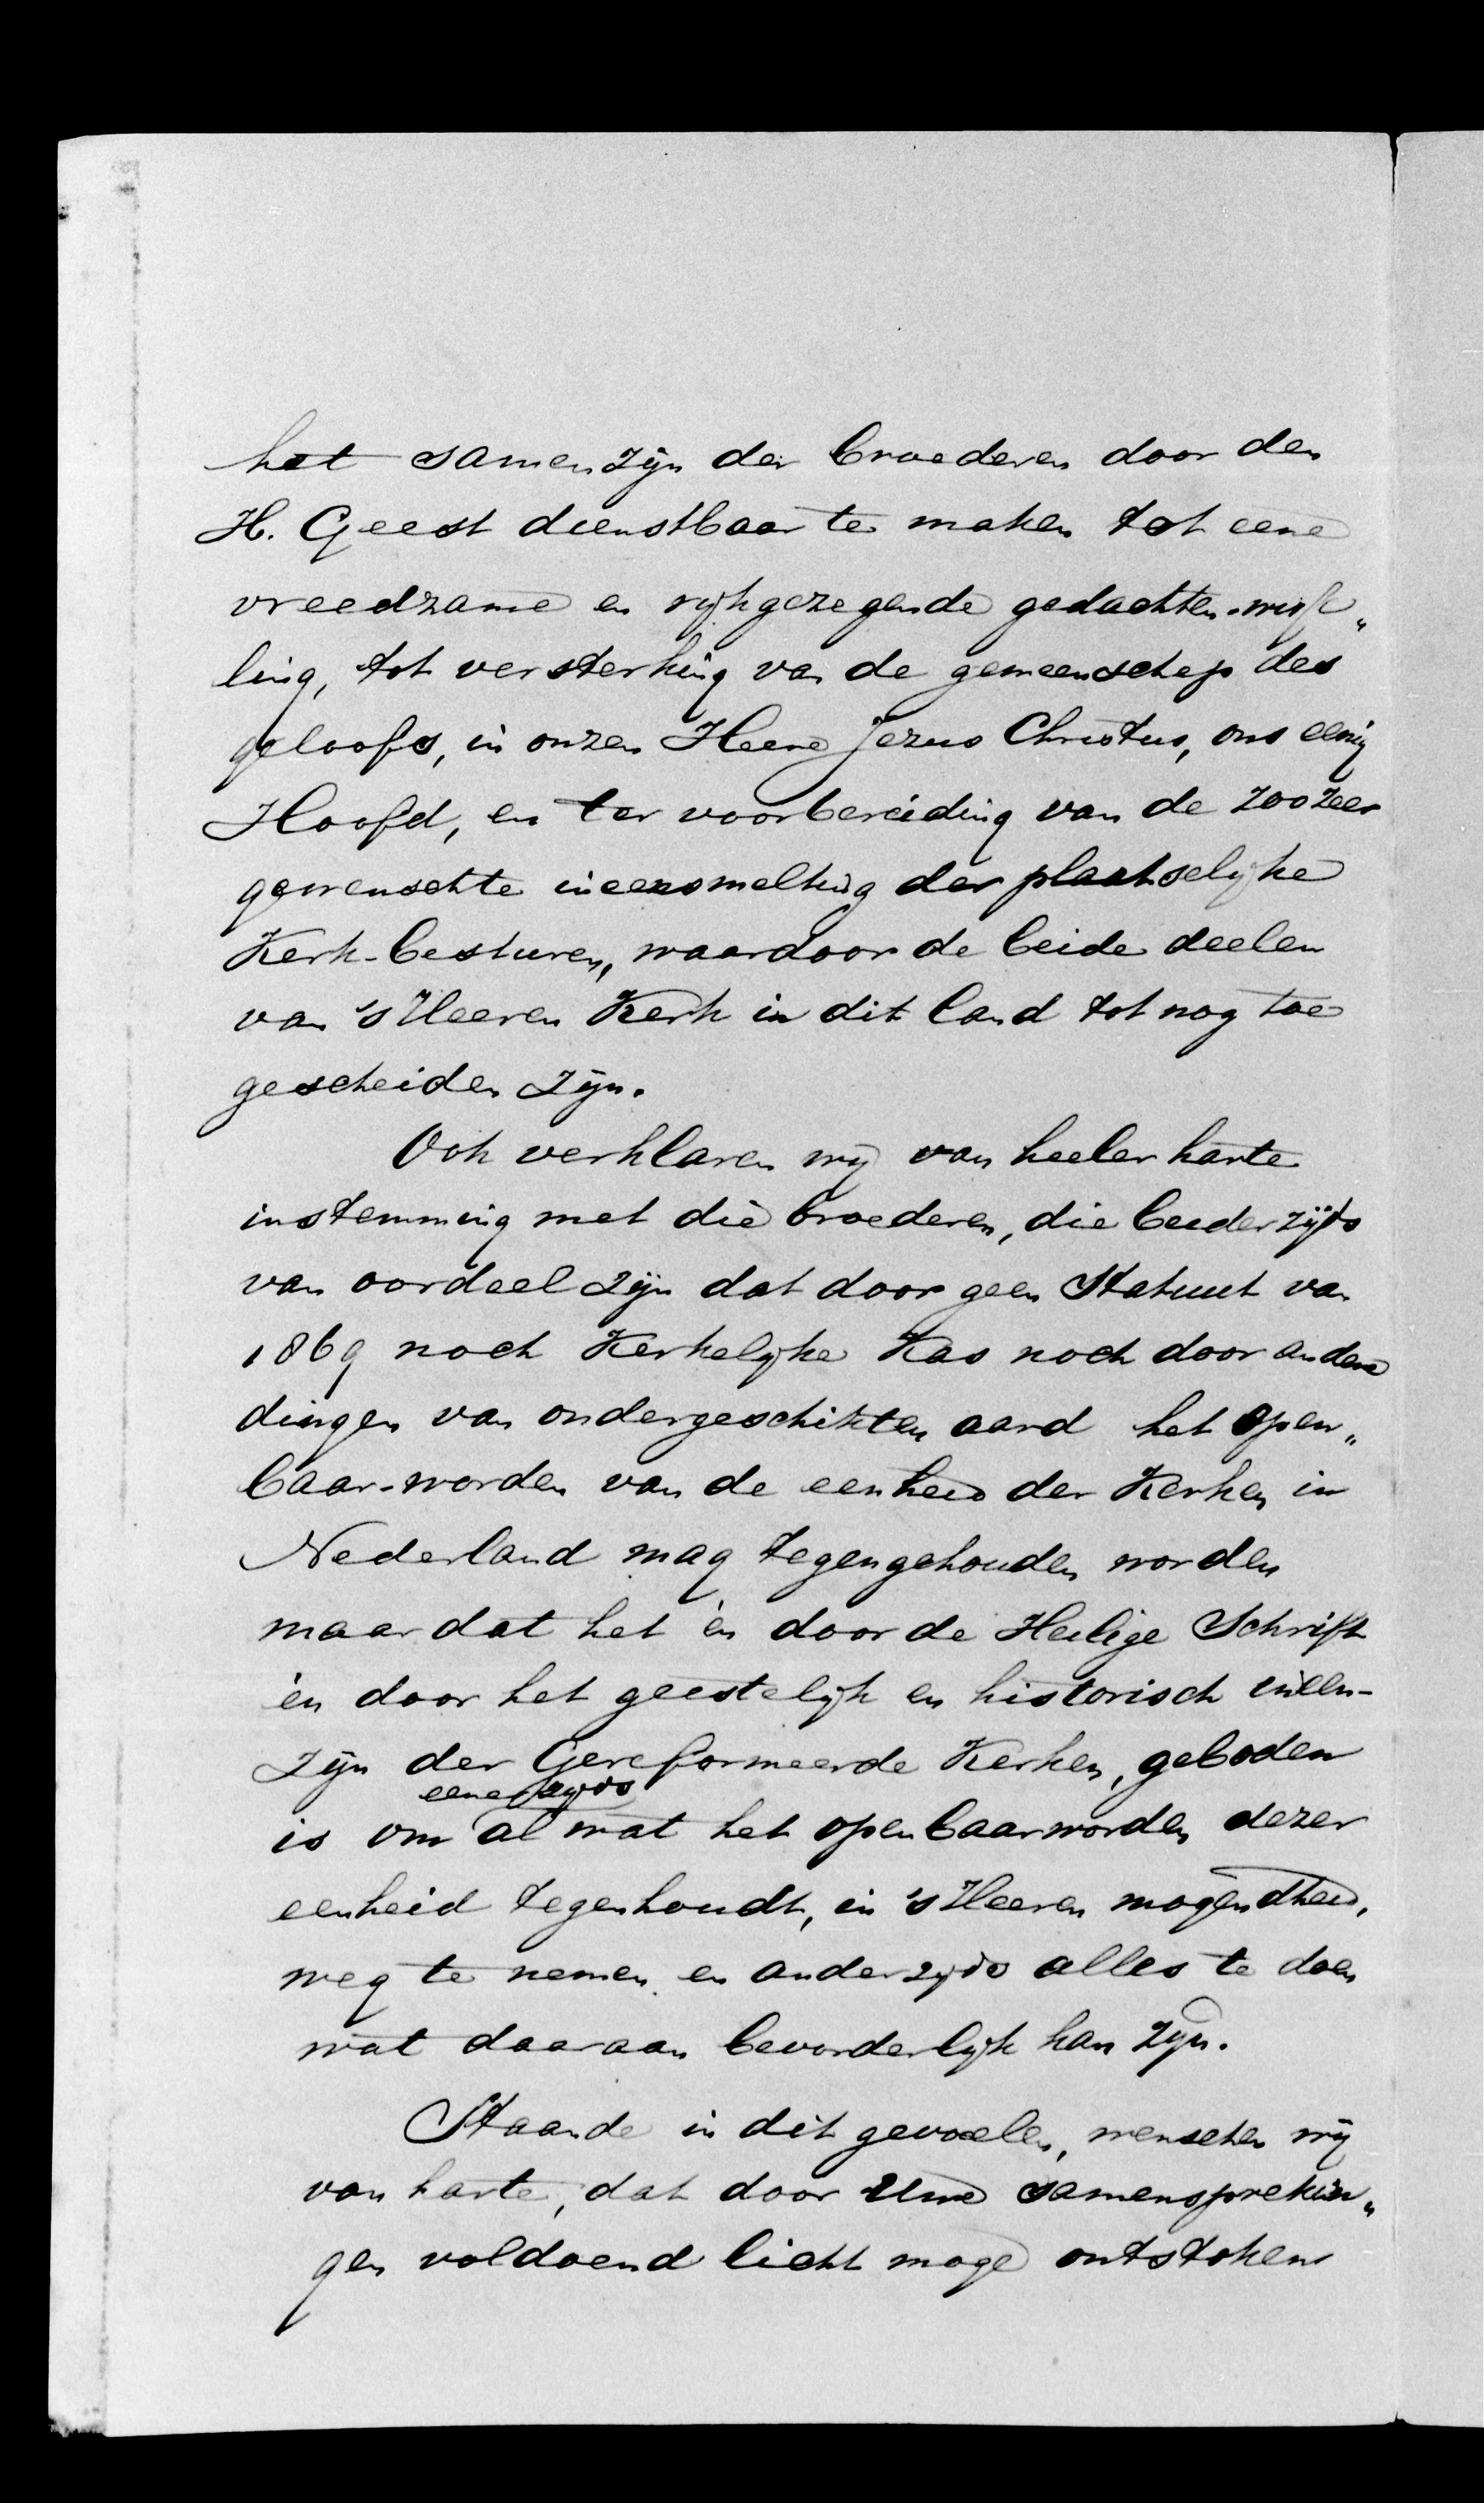 het samenzijn der broederen door den
H. Geest dienstbaar te maken tot eene
vreedzame en rijkgezegende gedachten-wisse„
ling, tot versterking van de gemeenschap des
geloofs, in onzen Heere Jezus Christus, ons eenig
Hoofd, en ter voorbereiding van de zoozeer
gewenschte ineensmelting der plaatselijke
Kerk-besturen, waardoor de beide deelen
van 's Heeren Kerk in dit land tot nog toe
gescheiden zijn.
Ook verklaren wij van heeler harte
instemming met die broederen, die beiderzijds
van oordeel zijn dat door geen Statuut van
1869 noch Kerkelijke Kas noch door andere
dingen van ondergeschikten aard het open„
baar-worden van de eenheid der Kerken in
Nederland mag tegengehouden worden
maar dat het èn door de Heilige Schrift
èn door het geestelijk en historisch inéén-
zijn der Gereformeerde Kerken, geboden
eenerzijds
is om al wat het openbaarworden dezer
eenheid tegenhoudt, in 's Heeren mogendheid,
weg te nemen en anderzijds alles te doen
wat daaraan bevorderlijk kan zijn.
Staande in dit gevoelen, wenschen wij
van harte, dat door Uwe samensprekin„
gen voldoend licht moge ontstoken